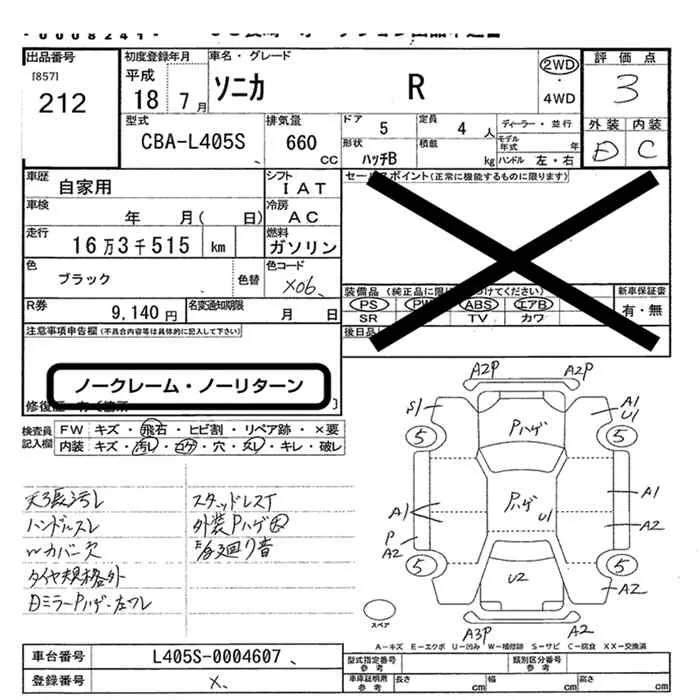 出品番号
[857]
212
初度登録年月
平成
18 7月
車名・グレード
ソニカ R
2WD
・
4WD
評価点
3
外装 内装
D C
型式
CBA-L405S
排気量
660 CC
ドア 5
定員 4 人
形状 ハッチB
積載 kg
ディーラー・並行
モデル年式 年
ハンドル 左・右
車歴
自家用
シフト
IAT
車検
年 月( 日)
冷房
AC
走行
16万3千515 km
燃料
ガソリン
色
ブラック 色替
色コード
X06
R券
9,140円
名変通知期限
月 日
セールスポイント(正常に機能するものに限ります)
PS PW ABS エアB
SR TV カワ
新車保証書
有・無
注意事項申告欄(不具合内容等は具体的に記入して下さい)
ノークレーム・ノーリターン
検査員記入欄
FW キズ・飛石・ヒビ割・リペア跡・×要
内装 キズ・汚レ・コゲ・穴・スレ・キレ・破レ
天張汚レ
ハンドルスレ
Wカバー欠
タイヤ規格外
スタッドレスT
A2P A2P
S1
A1
U1
5 5
Pハゲ
Pハゲ
U1
A1
A1
A2
P
A2
5 5
U2
A2
A3P A2
スペア
A-キズ E-エクボ U-凹み W-補修跡 S-サビ C-腐食 XX-交換済
車台番号
L405S-0004607
登録番号
X
型式指定番号
参考
類別区分番号
参考
車庫証明用
参考
長さ cm
幅 cm
高さ cm